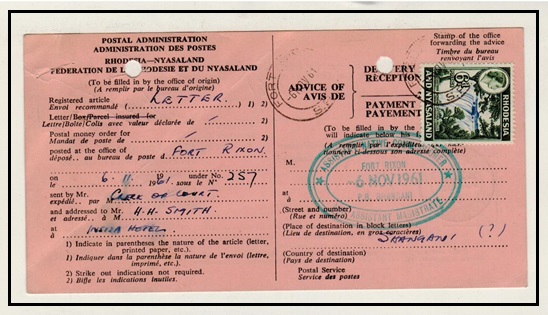 POSTAL ADMINISTRATION
ADMINISTRATION DES POSTES
RHODESIA—NYASALAND
FEDERATION DE LA RHODESIE ET DU NYASALAND
(To be filled in by the office of origin)
(A remplir par le bureau d'origine)
Registered article
Envoi recommandé
LETTER.
1) 2)
Letter/Box/Parcel insured for
Lettre/Boîte/Colis avec valeur déclarée de
2)
Postal money order for
Mandat de poste de
2)
posted at the office of
déposé au bureau de poste à
FORT RIXON.
on
le
6.11 1961
under No.
sous le Nº
257
sent by Mr.
expédié par M
CLERK OF COURT
and addressed to Mr.
et adressé à M
H.H. SMITH.
at
à
HOTEL
1) Indicate in parentheses the nature of the article (letter,
printed paper, etc.)
1) Indiquer dans la parenthèse la nature de l'envoi (lettre,
imprimé, etc.)
2) Strike out indications not required.
2) Biffer les indications inutiles.
Stamp of the office
forwarding the advice
Timbre du bureau
renvoyant l'avis
ADVICE OF
AVIS DE
DELIVERY
RECEPTION
PAYMENT
PAYEMENT
6d
RHODESIA
AND NYASALAND
(To be filled in by the
will indicate below his
(A remplir par l'expéditeur
tionnera ci-dessous son adresse complète)
M.
ASSISTANT
FORT RIXON
-6 NOV 1961
ASSISTANT MAGISTRATE
at
à
(Street and number)
(Rue et numéro)
(Place of destination in block letters)
(Lieu de destination, en gros caractères)
SHANGANI (?)
(Country of destination)
(Pays de destination)
Postal Service
Service des postes